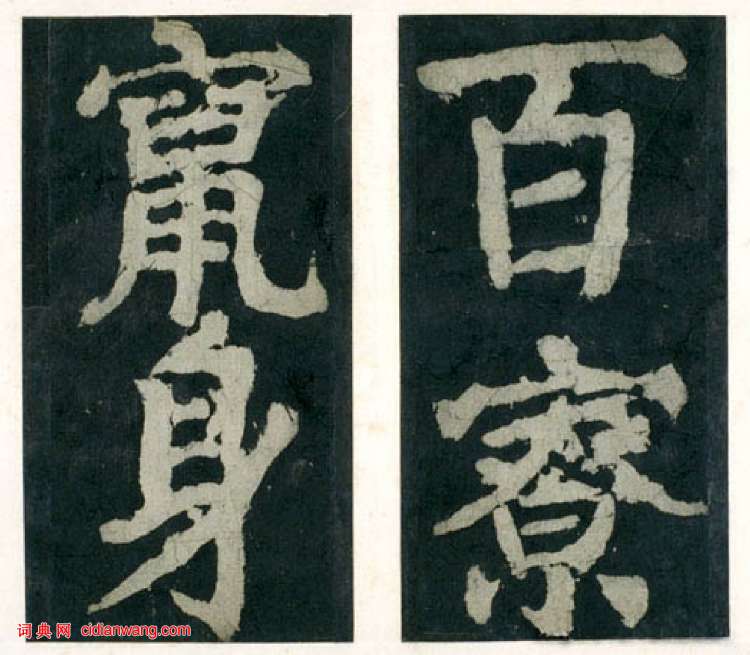 百寮
竄身
词典网 cidianwang.com